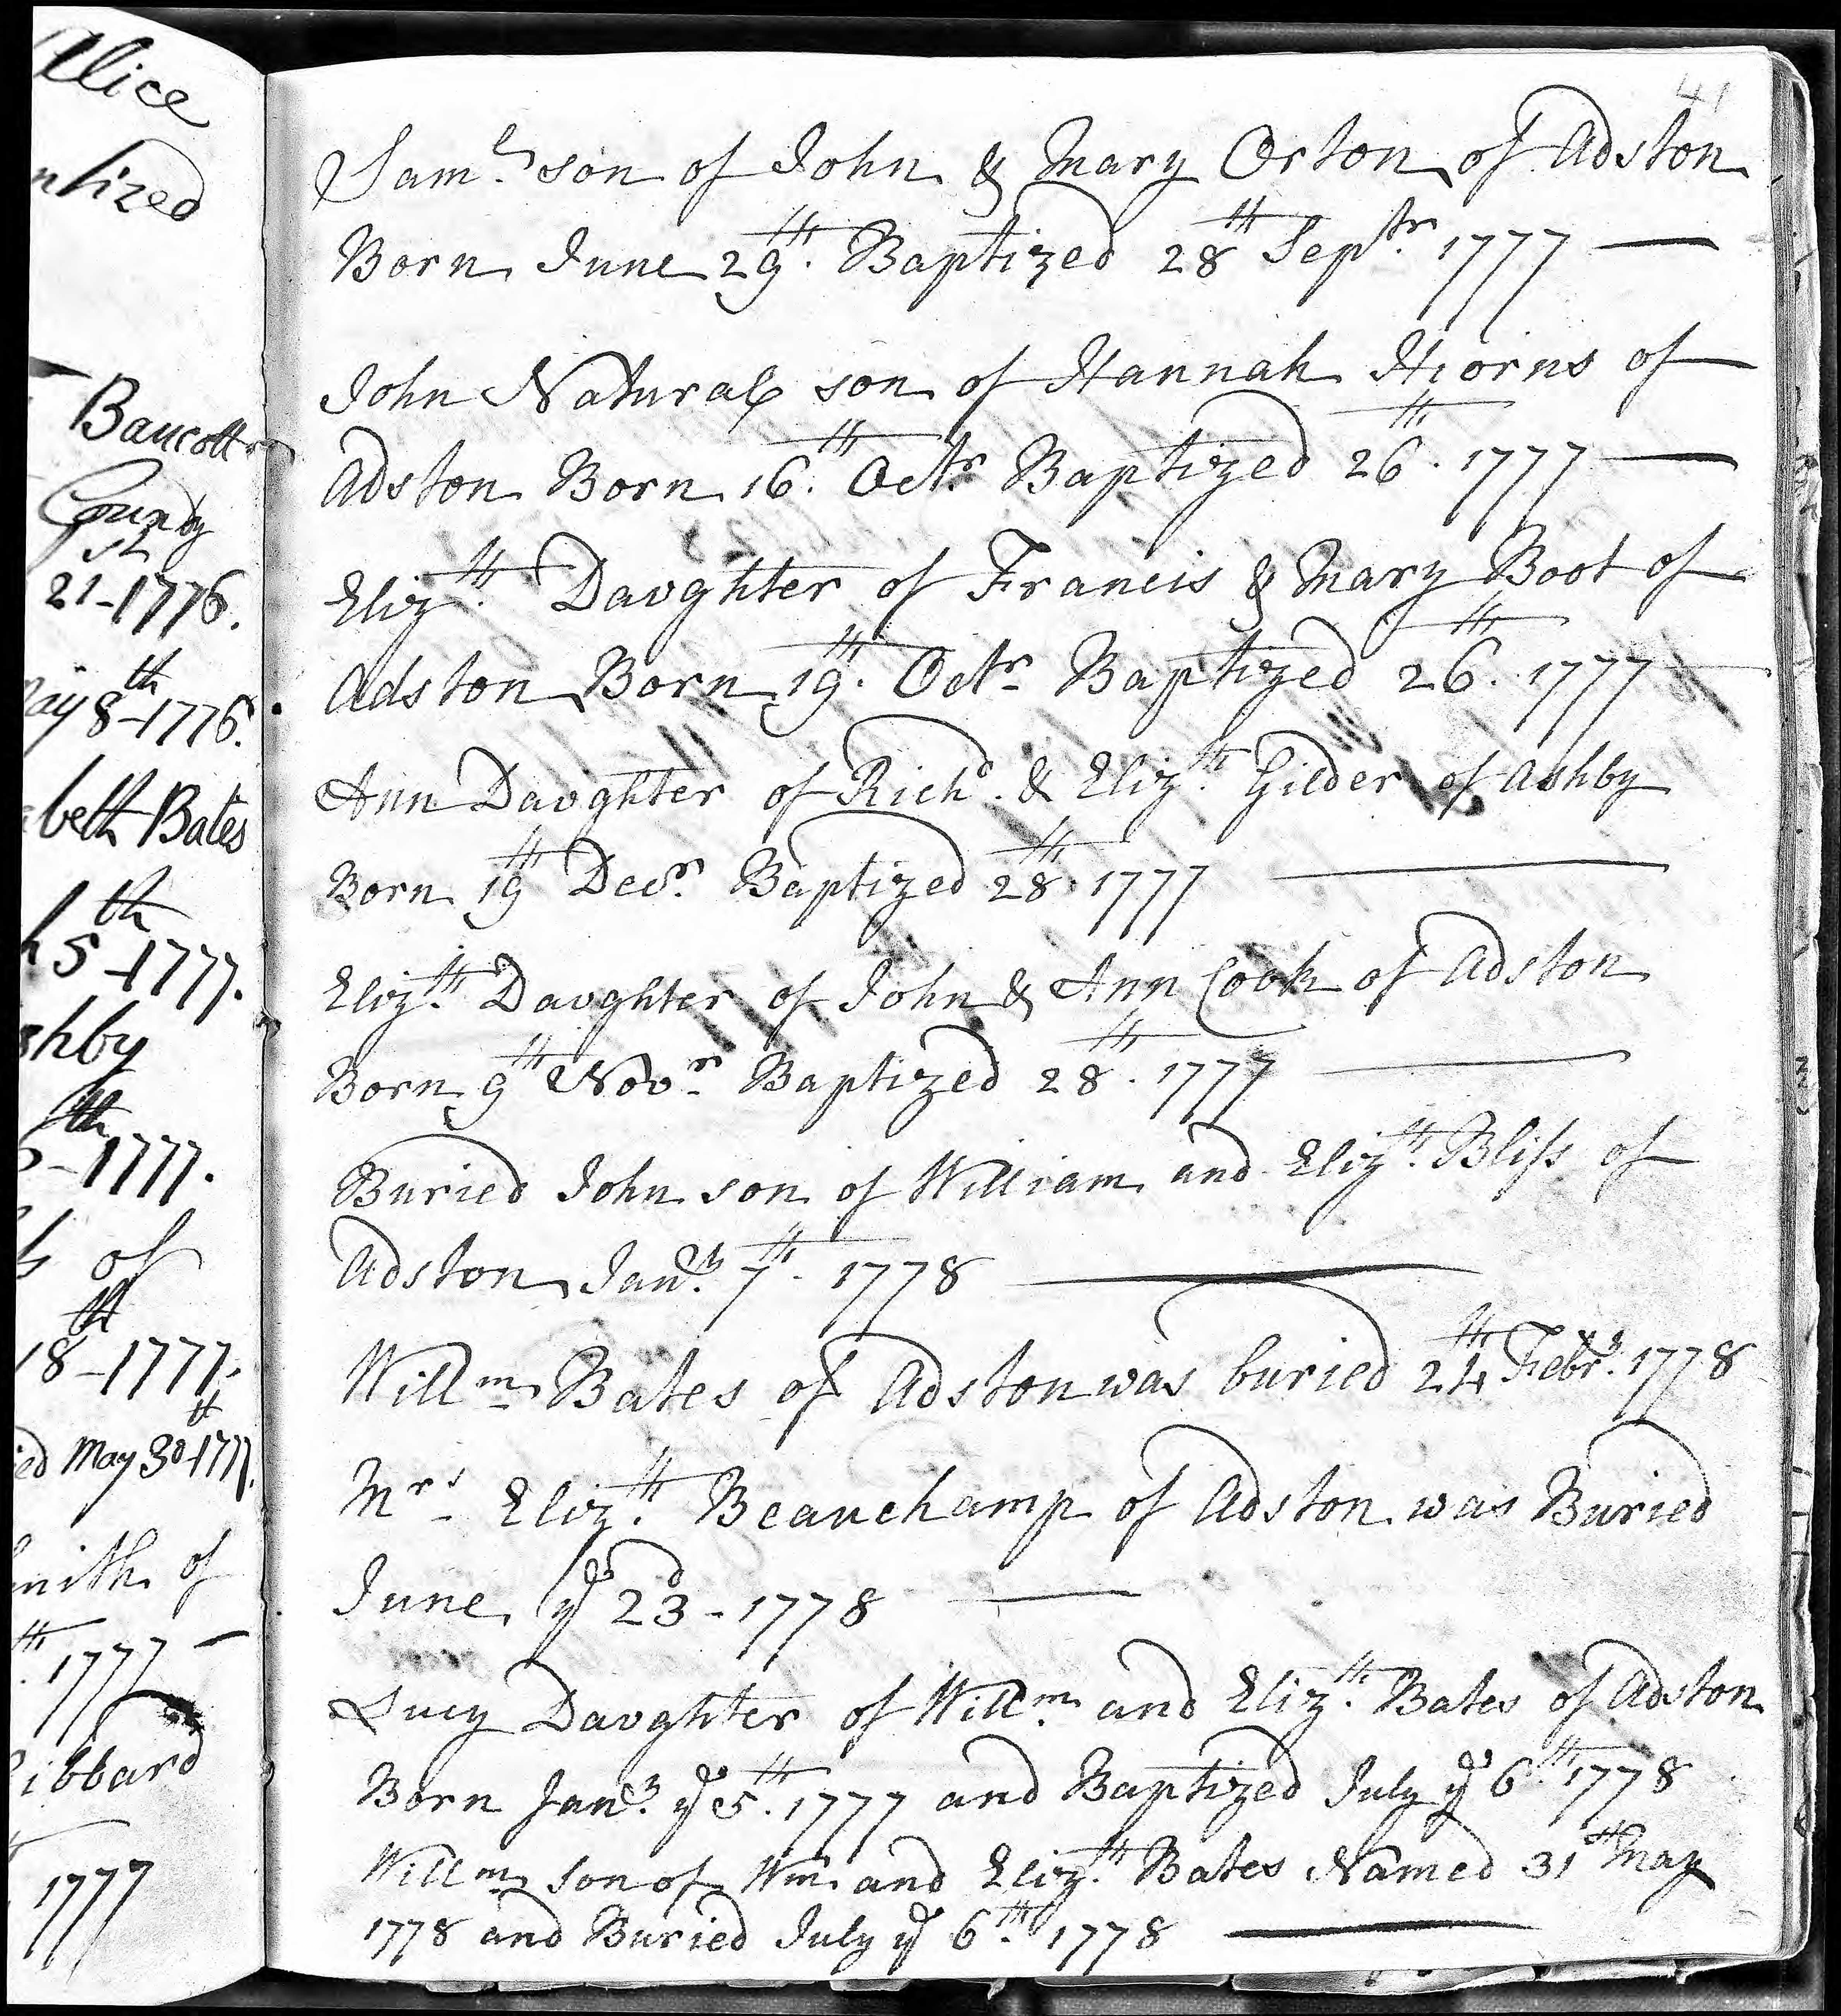 Alice
ntized
Baucott
County
st
21-1776.
May 8th-1776.
abeth Bates
h 5th-1777.
shby
6th-1777.
of
18th-1777.
ied May 30th-1777.
mith of
th. 1777 —
ibbard
1777
41
Saml. son of John & Mary Orton of Adston
Born June 29th. Baptized 28th Septr. 1777 —
John Natural son of Hannah Hiorns of
Adston Born 16th. Octr. Baptized 26th. 1777 —
Elizth. Davghter of Francis & Mary Boot of
Adston Born 19th. Octr. Baptized 26th. 1777
Ann Davghter of Richd. & Elizth. Gilder of Ashby
Born 19th Decr. Baptized 28th. 1777 —
Elizth. Davghter of John & Ann Cook of Adston
Born 9th Novr. Baptized 28th. 1777 —
Buried John son of William and Elizth. Bliſs of
Adston Jany. 7th. 1778 —
Willm. Bates of Adston was buried 24th Febry. 1778
Mrs. Elizth. Beauchamp of Adston was Buried
June ye 23d - 1778 —
Lucy Davghter of Willm. and Elizth. Bates of Adston
Born Jany. ye 5th. 1777 and Baptized July ye 6th. 1778
Willm. Son of Wm. and Elizth. Bates Named 31st May
1778 and Buried July ye 6th. 1778 —